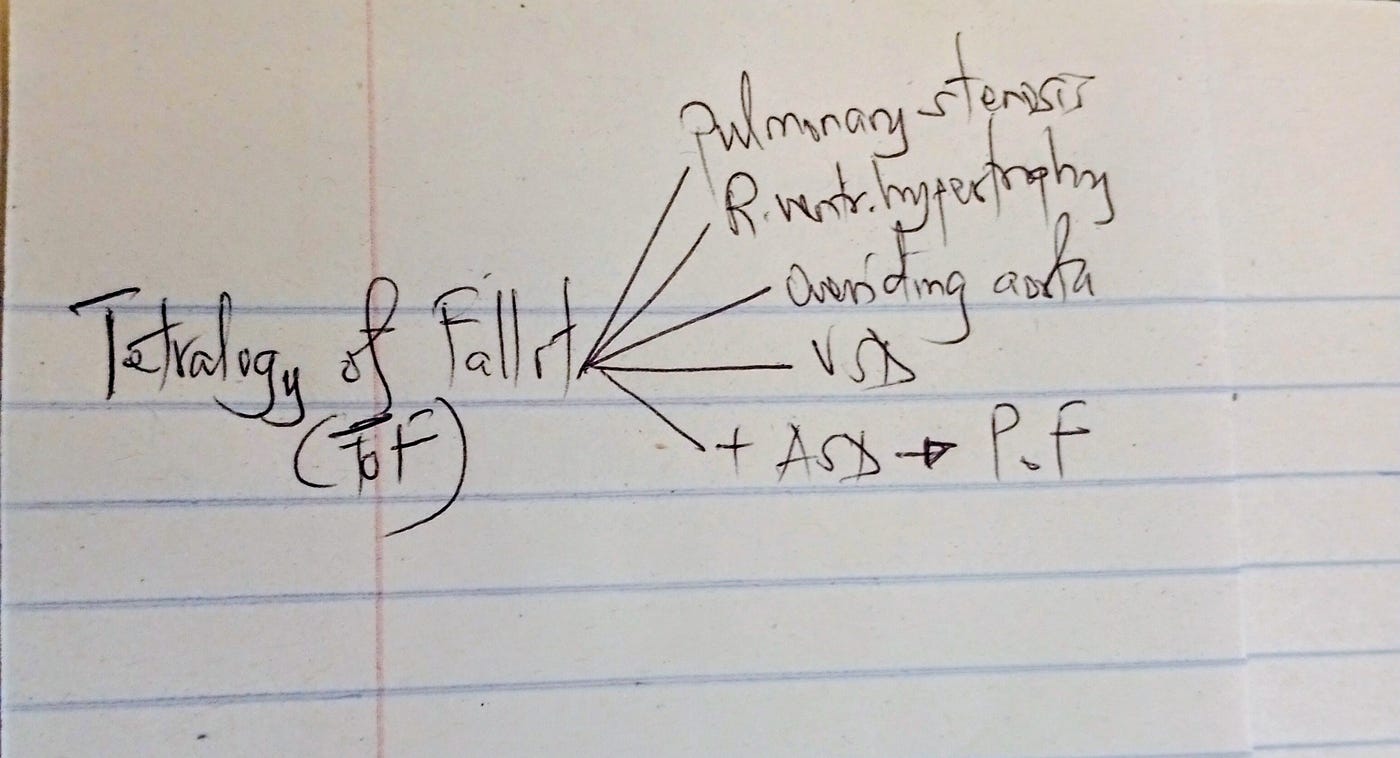 Pulmonary stenosis
R. ventr. hypertrophy
Overiding aorta
Tetralogy of Fallot
VSD
(ToF)
+ ASD → P.F